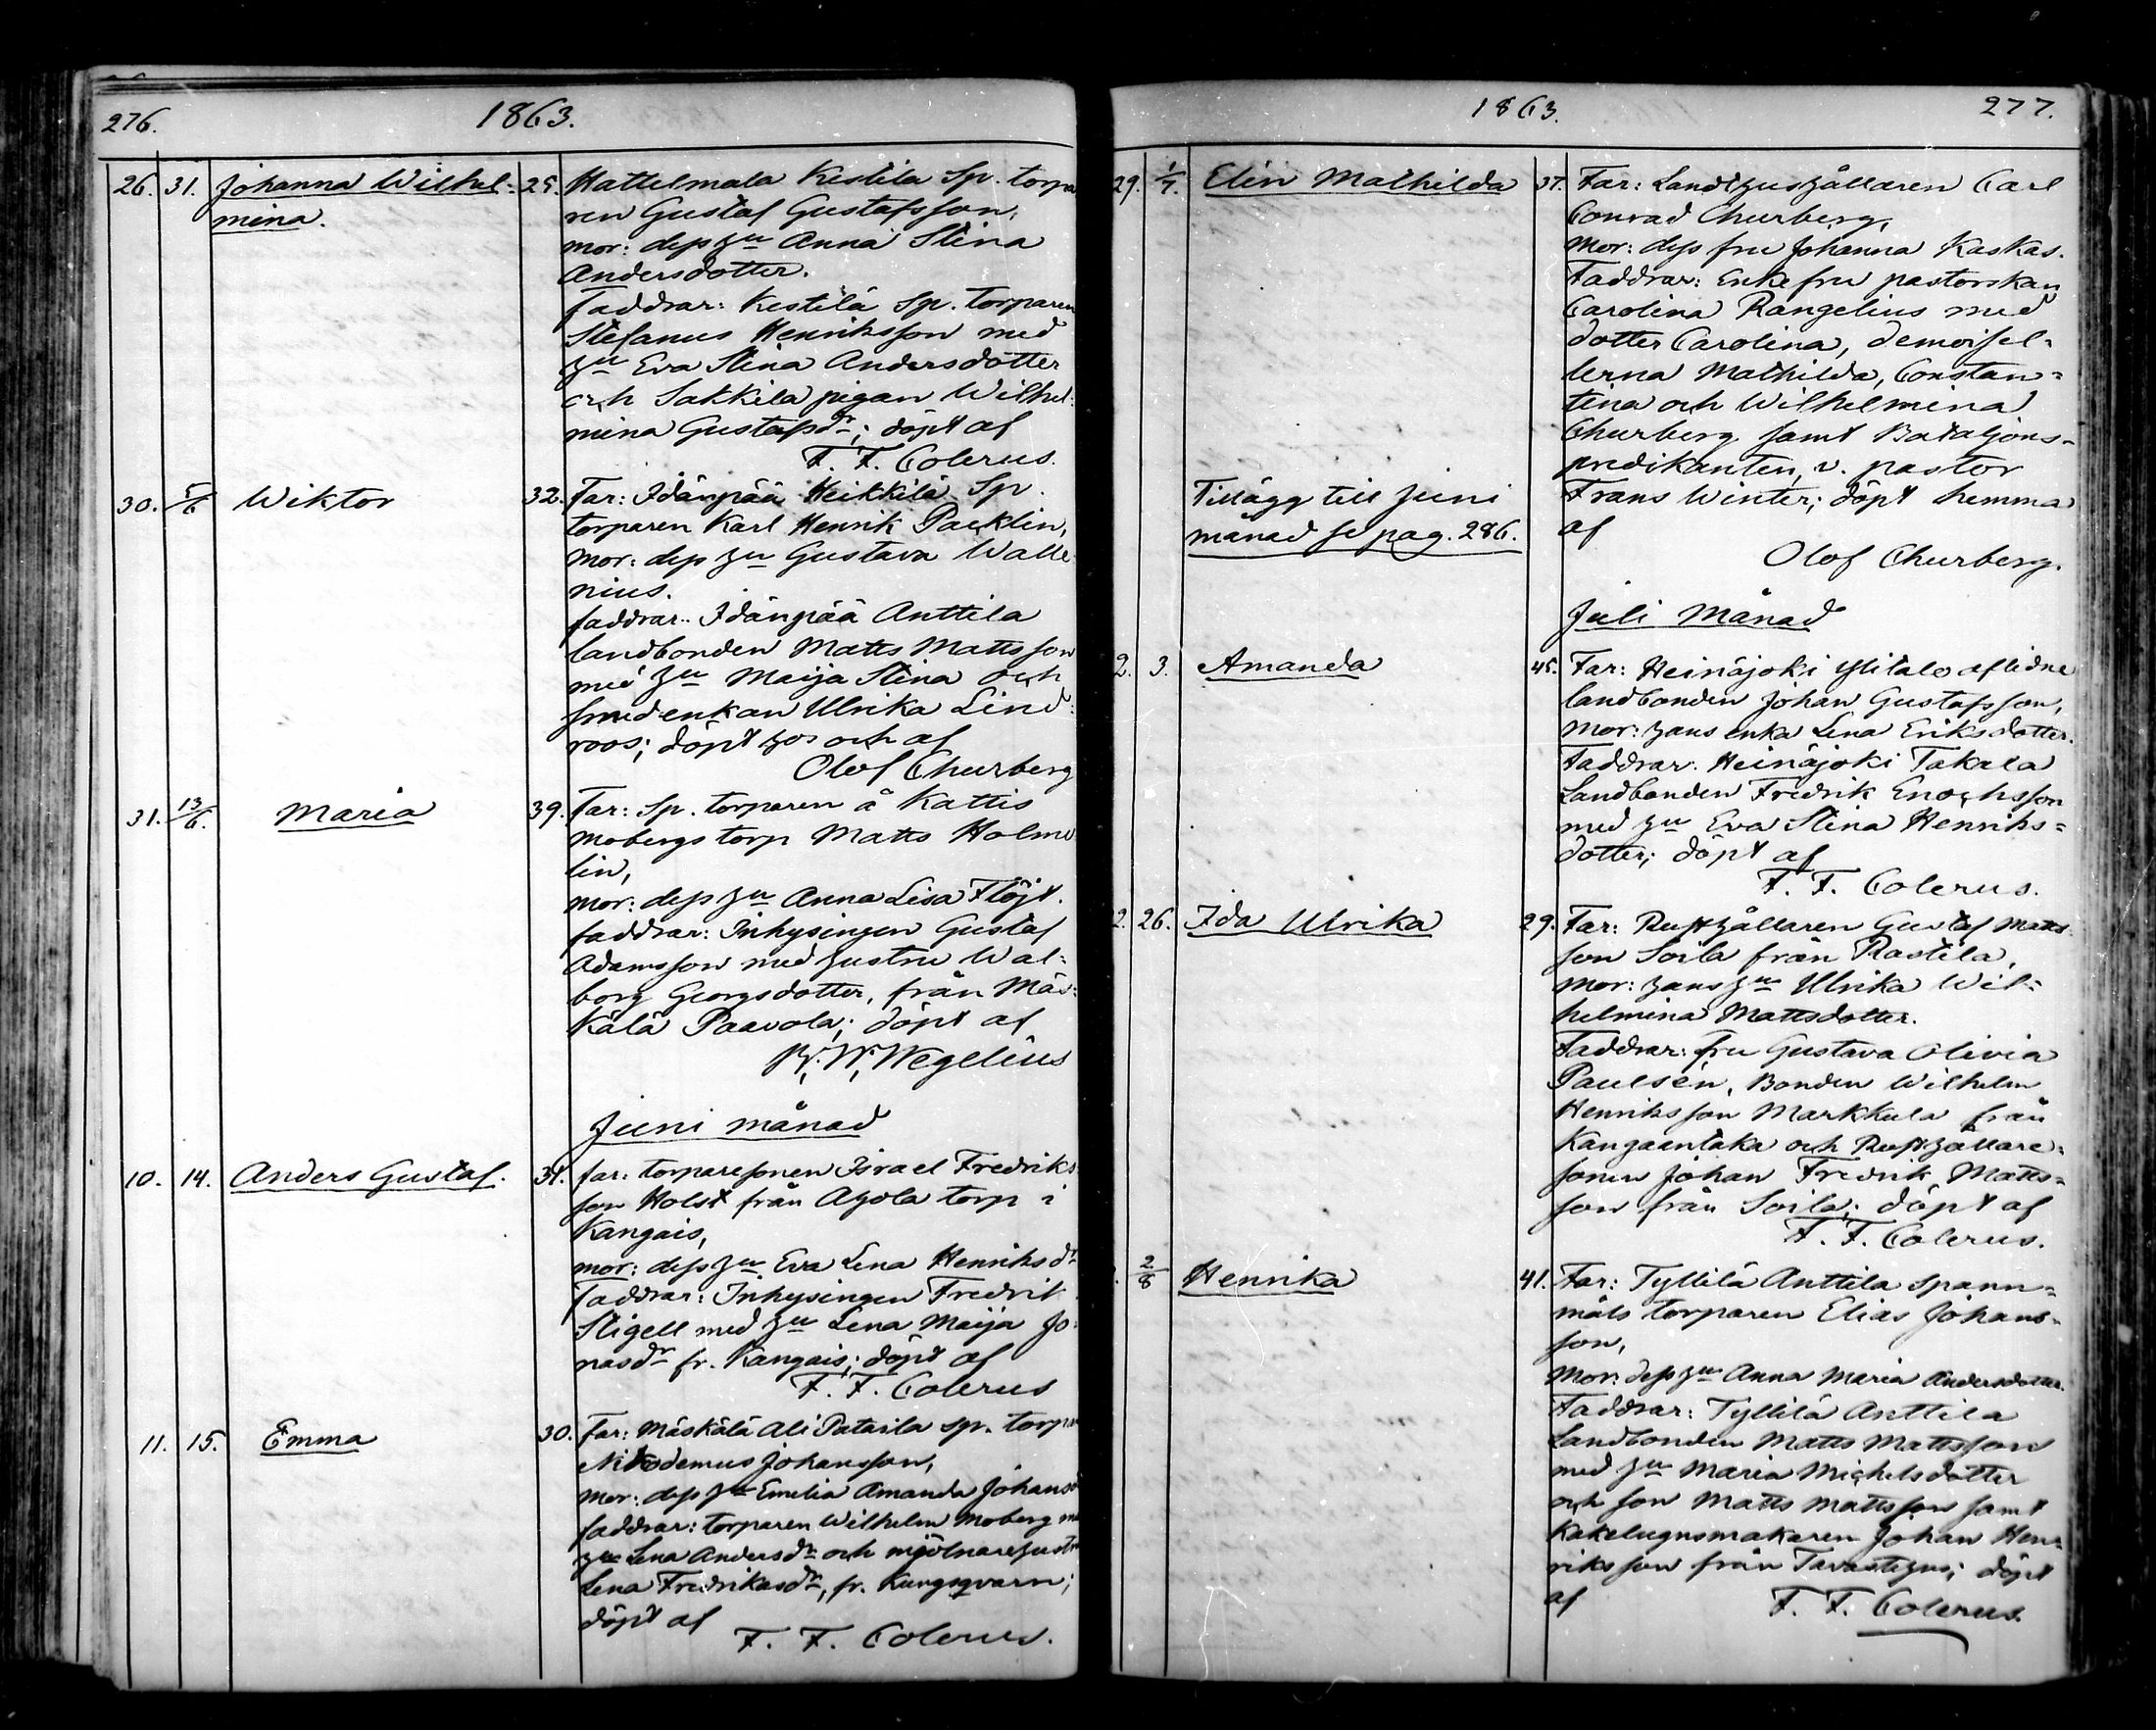 276.
1863.
26. 31. Johanna Wilhel-
mina.
25. Hattelmala Kestilä Sp. torpa
ren Gustaf Gustafsson,
mor: dess hu Anna Stina
Andersdotter.
faddrar: Kestilä Sp. torparen
Stefanus Henriksson med
hu Eva Stina Andersdotter
och Sakkila pigan Wilhel-
mina Gustafsdr; döpt af
F. F. Colerus.
30. 5/6 Wiktor
32. Far: Idänpää Heikkilä Sp.
torparen Karl Henrik Packlin,
mor: dess hu Gustava Walle
nius.
faddrar: Idänpää Anttila
landbonden Matts Mattsson
med hu Maija Stina och
smedenkan Ulrika Lind-
roos; döpt hos och af
Olof Churberg
31. 13/6. Maria
39. Far: Sp. torparen å Kattis
Mobergs torp Matts Holme
lin,
mor: dess hu Anna Lisa Flöjt.
faddrar: Inhysingen Gustaf
Adamsson med hustru Wal-
borg Georgsdotter, från Mäs-
kälä Paavola; döpt af
W. Wegelius
Juni månad
10. 14. Anders Gustaf.
31. far: torparesonen Israel Fredriks
son Holst från Ayola torp i
Kangais,
mor: dess hu Eva Lena Henriksdr
Faddrar: Inhysingen Fredrik
Stigell med hu Lena Maija Jo-
nasdr fr. Kangais; döpt af
F. F. Colerus
11. 15. Emma
30. Far: Mäskälä Ali Pataila sp. torpa
Nikodemus Johansson,
mor: dess hu Emilia Amanda Johans
faddrar: torparen Wilhelm Moberg m
hu Lena Andersdr och mjölnarehustr
Lena Fredriksdr, fr. Kungsqvarn;
döpt af
F. F. Colerus.
1863.
277.
29. 1/7. Elin Mathilda
37. Far: Landthushållaren Carl
Conrad Churberg,
Mor: dess fru Johanna Kaskas.
Faddrar: Enkefru pastorskan
Carolina Rangelius med
dotter Carolina, demoisel-
lerna Mathilda, Constan-
tina och Wilhelmina
Churberg samt Bataljons-
predikanten, v. pastor
Frans Winter; döpt hemma
af
Olof Churberg.
Tillägg till Juni
månad se pag. 286.
Juli Månad
2. 3. Amanda
45. Far: Heinäjoki Ylitalo aflidne
landbonden Johan Gustafsson,
Mor: hans enka Lena Eriksdotter.
Faddrar: Heinäjoki Takala
Landbonden Fredrik Enochsson
med hu Eva Stina Henriks-
dotter; döpt af
F. F. Colerus.
2. 26. Ida Ulrika
29. Far: Rusthållaren Gustaf Matts
son Soila från Rastila,
Mor: hans hu Ulrika Wil-
helmina Mattsdotter.
Faddrar: fru Gustava Olivia
Paulsén, Bonden Wilhelm
Henriksson Markkula från
Kangaantaka och Rusthållare-
sonen Johan Fredrik Matts-
son från Soila; döpt af
F. F. Colerus.
2/8 Henrika
41. Far: Tyllilä Anttila spann-
måls torparen Elias Johans-
son,
Mor: dess hu Anna Maria Andersdotter.
Faddrar: Tyllilä Anttila
Landbonden Matts Mattsson
med hu Maria Michelsdotter
och son Matts Mattsson samt
Kakelugnsmakaren Johan Hen-
riksson från Tavastehus; döpt
af
F. F. Colerus.